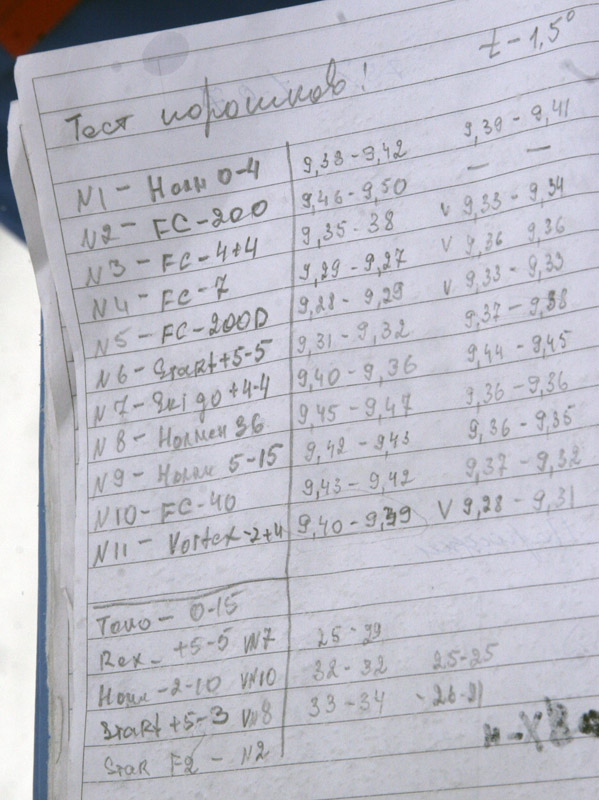 t - 1,5°
Тест порошков!
N1 - Холм 0-4 9,38 - 9,42 9,39 - 9,41
N2 - FC - 200 9,46 - 9,50 — —
N3 - FC - 4+4 9,35 - 38 v 9,33 - 9,34
N4 - FC - 7 9,29 - 9,27 v 9,36 9,36
N5 - FC - 200D 9,28 - 9,29 v 9,33 - 9,33
N6 - Start +5-5 9,31 - 9,32 9,37 - 9,38
N7 - Ski go +4-4 9,40 - 9,36 9,44 - 9,45
N8 - Холмен 36 9,45 - 9,47 9,36 - 9,36
N9 - Холм 5-15 9,42 - 9,43 9,36 - 9,35
N10 - FC - 40 9,43 - 9,42 9,37 - 9,32
N11 - Vortex -2+4 9,40 - 9,39 V 9,28 - 9,31
Токо - 0-15
Rex - +5-5 VN7 25-39
Холм -2-10 VN10 32-32 25-25
Start +5-3 VN8 33-34 - 26-31
Star F2 - N2